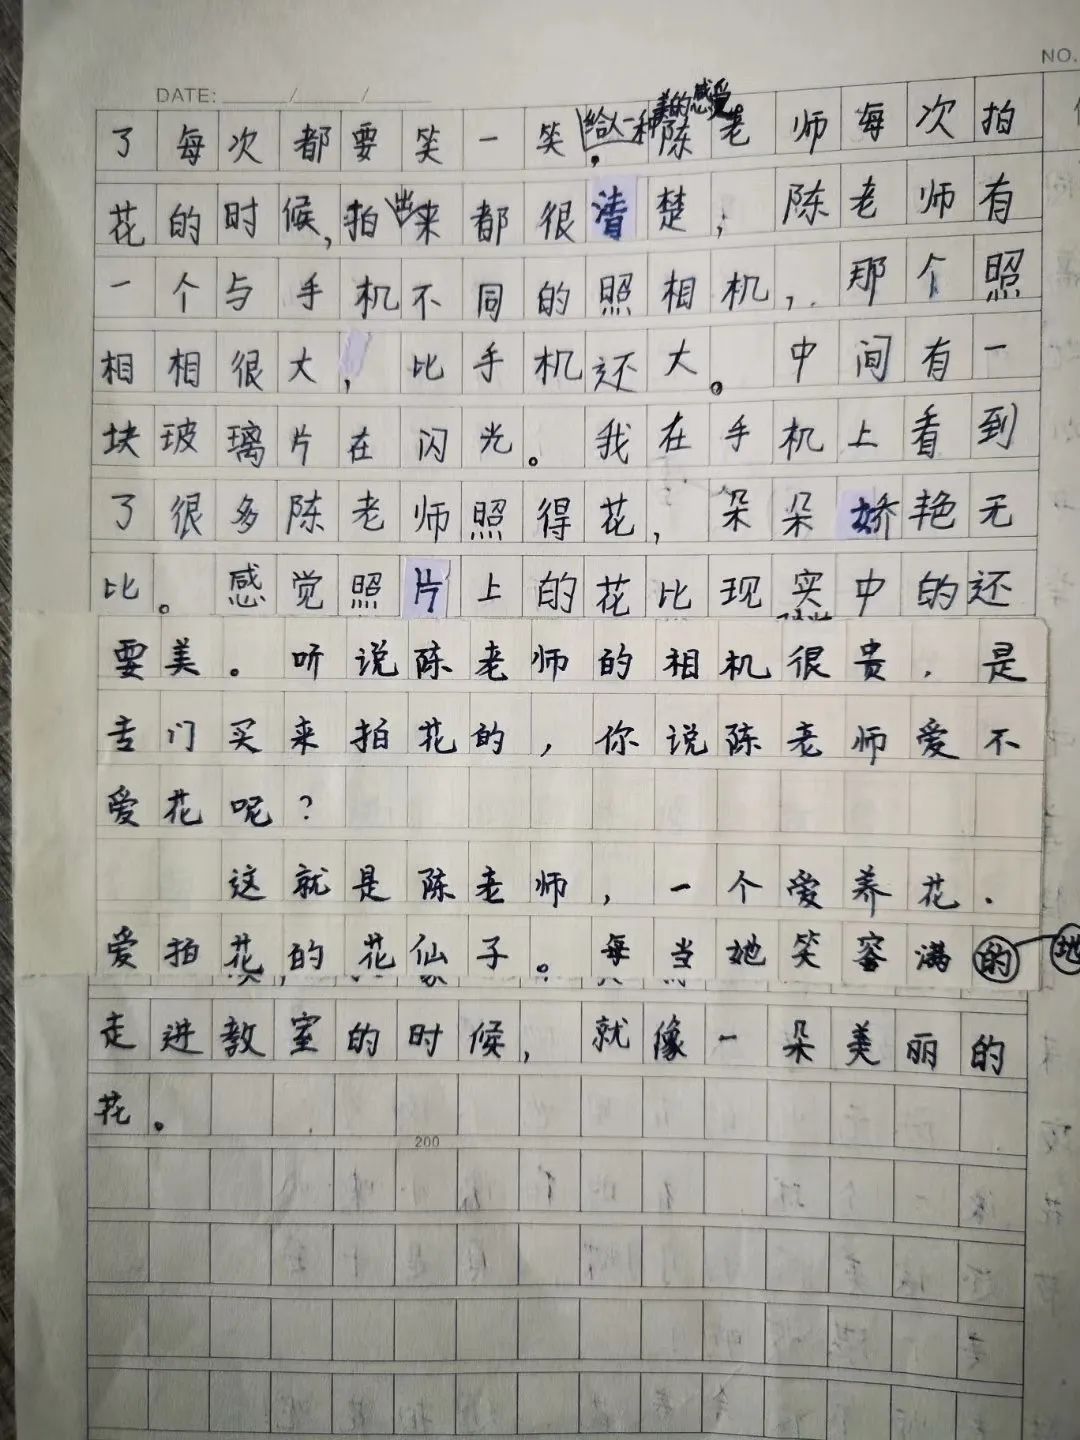 DATE: / /
NO.
了每次都要笑一笑，给人一种美的感受。陈老师每次拍
花的时候，拍出来都很清楚，陈老师有
一个与手机不同的照相机，那个照
相相很大，比手机还大。中间有一
块玻璃片在闪光。我在手机上看到
了很多陈老师照得花，朵朵娇艳无
比。感觉照片上的花比现实中的还
要美。听说陈老师的相机很贵，是
专门买来拍花的，你说陈老师爱不
爱花呢？
这就是陈老师，一个爱养花.
爱拍花的花仙子。每当她笑容满的地
走进教室的时候，就像一朵美丽的
花。
200